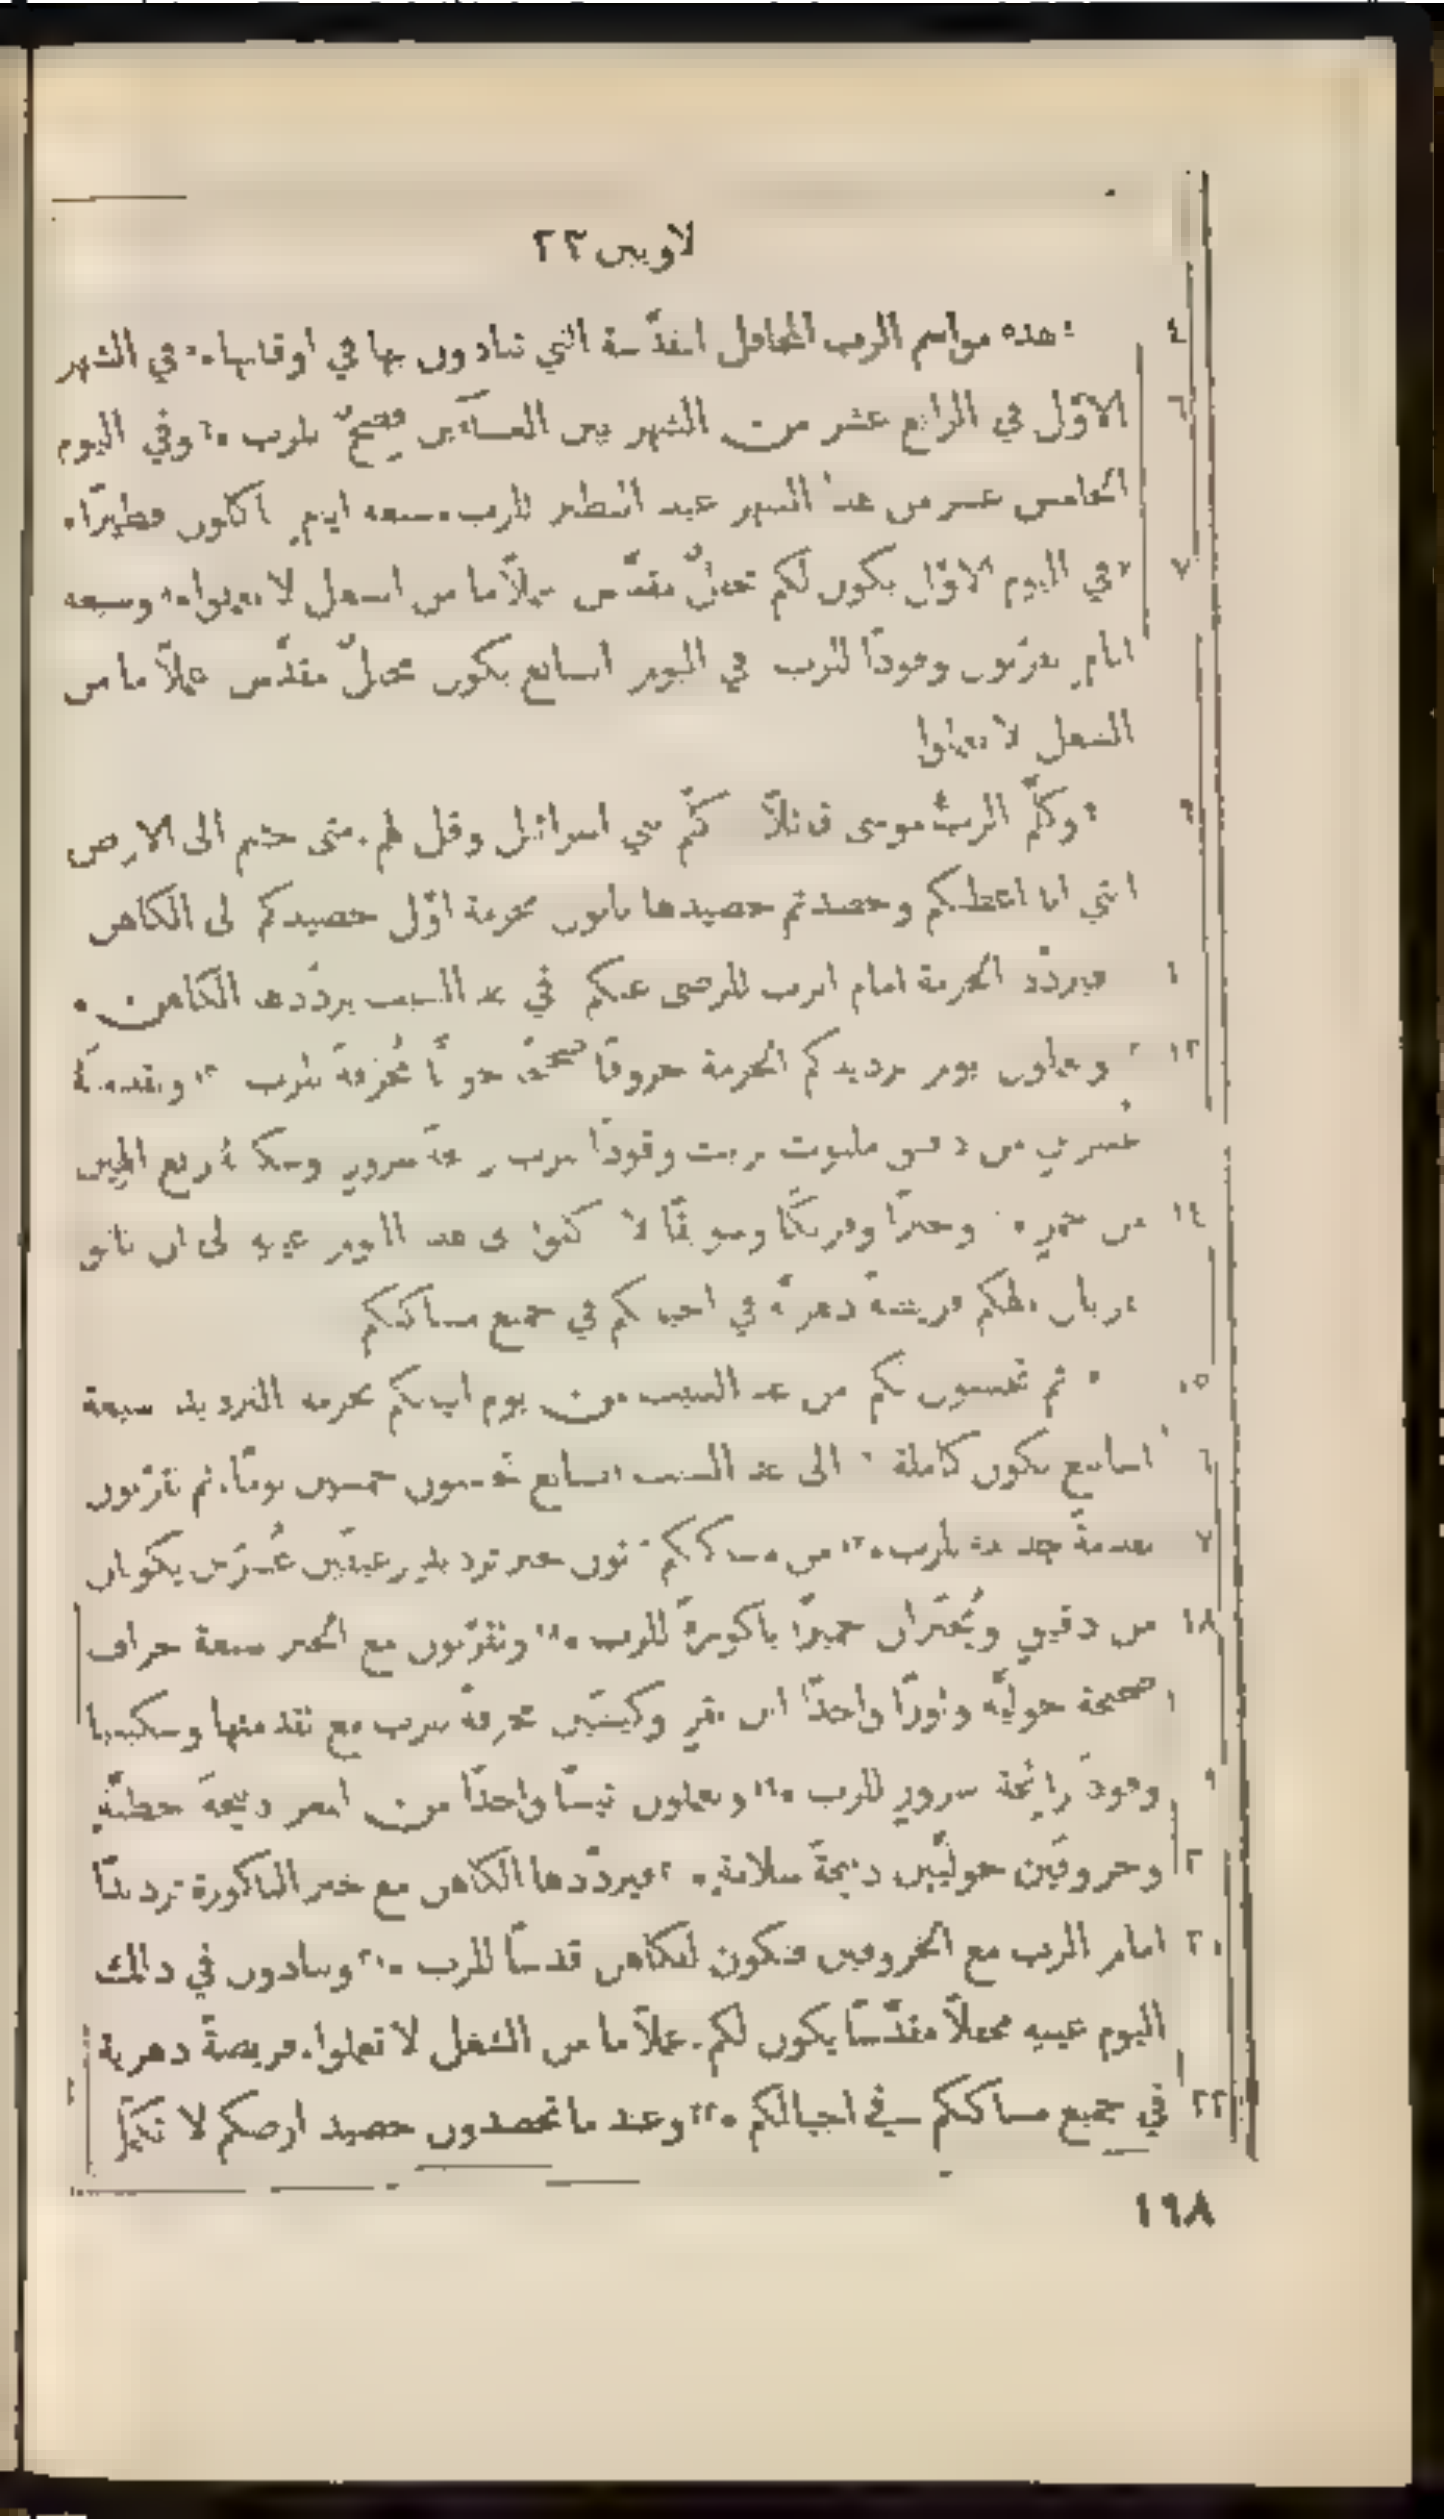 لاويين ٢٣
٤ ٤هذه مواسم الرب المحافل المقدّسة التي تنادون بها في اوقاتها.٥في الشهر
٦ الاوّل في الرابع عشر من الشهر بين العشاءَين فصحٌ للرب.٦وفي اليوم
الخامس عشر من هذا الشهر عيد الفطير للرب. سبعة ايامٍ تاكلون فطيرًا.
٧ ٧في اليوم الاوّل يكون لكم محفلٌ مقدّس عملًا ما من الشغل لا تعملوا.٨وسبعة
ايامٍ تقرّبون وقودًا للرب في اليوم السابع يكون محفلٌ مقدّس عملًا ما من
الشغل لا تعملوا
٩ ٩وكلّم الربُّ موسى قائلًا كلّم بني اسرائيل وقل لهم. متى جئتم الى الارض
التي انا اعطيكم وحصدتم حصيدها تاتون بحزمة اوّل حصيدكم الى الكاهن
فيردّد الحزمة امام الرب للرضى عنكم في غد السبت يردّدها الكاهن.
١٢ وتعملون يوم ترديدكم الحزمة خروفًا صحيحًا حوليًّا محرقةً للرب ١٣وتقدمتهُ
عشرين من دقيق ملتوت بزيت وقودًا للرب رائحة سرورٍ وسكيبهُ ربع الهين
١٤ من خمرٍ. وخبزًا وفريكًا وسويقًا لا تاكلوا الى هذا اليوم عينهِ الى ان تاتوا
بقربان الهكم فريضةً دهريّةً في اجيالكم في جميع مساكنكم
١٥ ثم تحسبون لكم من غد السبت من يوم اتيانكم بحزمة الترديد سبعة
اسابيع تكون كاملة الى غد السبت السابع تحسبون خمسين يومًا. ثم تقرّبون
تقدمةً جديدة للرب.١٧من مساكنكم تاتون بخبز ترديد رغيفَين عُشرَين يكونان
١٨ من دقيق ويُخبَزان خميرًا باكورةً للرب.١٨وتقرّبون مع الخبز سبعة خراف
صحيحة حوليّة وثورًا واحدًا ابن بقر وكبشَين محرقةً للرب مع تقدمتها وسكيبها
وقودَ رائحة سرورٍ للرب.١٩وتعملون تيسًا واحدًا من المعز ذبيحةَ خطيّةٍ
وخروفَين حوليَّين ذبيحةَ سلامةٍ.٢٠فيردّدها الكاهن مع خبز الباكورة ترديدًا
امام الرب مع الخروفين فتكون للكاهن قدسًا للرب.٢١وتنادون في ذلك
اليوم عينهِ محفلًا مقدّسًا يكون لكم. عملًا ما من الشغل لا تعملوا. فريضةً دهرية
٢٢ في جميع مساكنكم في اجيالكم.٢٢وعند ما تحصدون حصيد ارضكم لا تكمّل
١٩٨